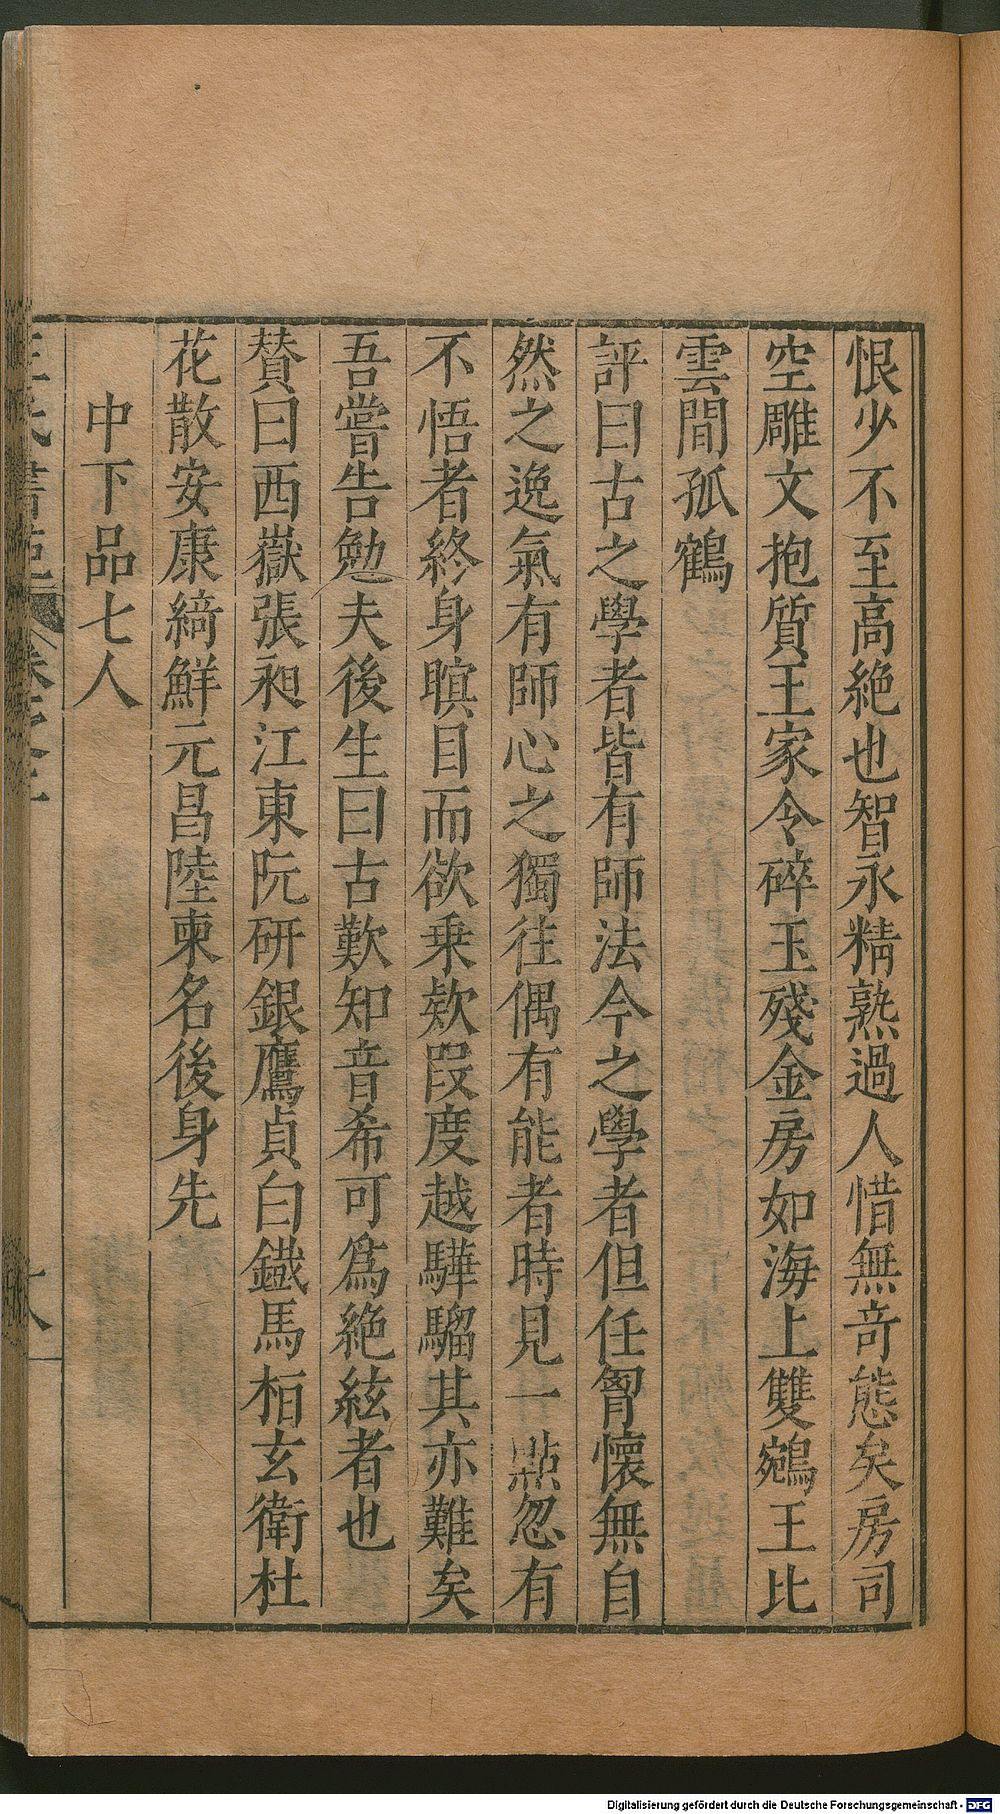 恨少不至高絶也智永精熟過人惜無奇態矣房司
空雕文抱質王家令碎玉殘金房如海上雙鵷王比
雲間孤鶴
評曰古之學者皆有師法今之學者但任胷懷無自
然之逸氣有師心之獨往偶有能者時見一點忽有
不悟者終身瞑目而欲乗欵叚度越驊騮其亦難矣
吾嘗告勉夫後生曰古歎知音希可爲絶絃者也
賛曰西嶽張昶江東阮研銀鷹貞白鐡馬桓玄衛杜
花散安康綺鮮元昌陸柬名後身先
中下品七人
王氏書苑 卷之
十八
Digitalisierung gefördert durch die Deutsche Forschungsgemeinschaft - DFG